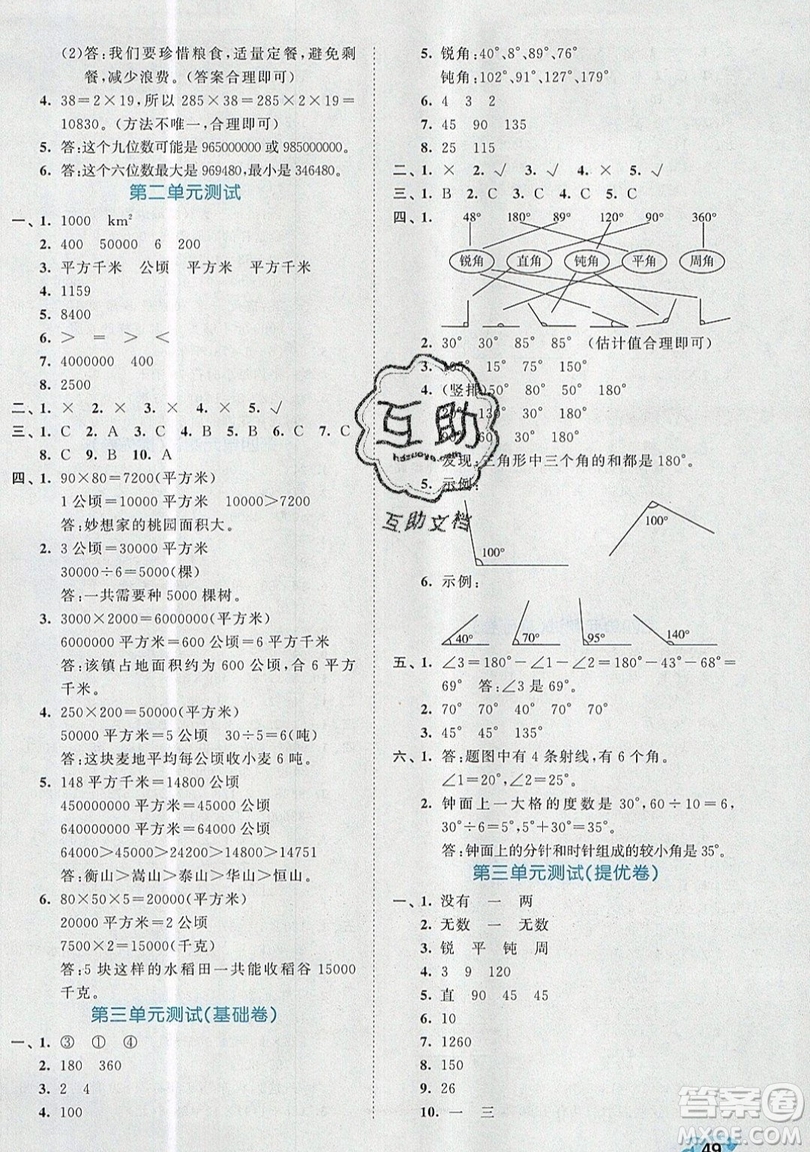 (2)答:我们要珍惜粮食,适量定餐,避免剩
餐,减少浪费。(答案合理即可)
4. 38=2×19,所以 285×38=285×2×19=
10830。(方法不唯一,合理即可)
5. 答:这个九位数可能是 965000000 或 985000000。
6. 答:这个六位数最大是 969480,最小是 346480。
第二单元测试
一、1. 1000 km²
2. 400 50000 6 200
3. 平方千米 公顷 平方千米 平方千米
4. 1159
5. 8400
6. > = > <
7. 4000000 400
8. 2500
二、1. × 2. × 3. × 4. × 5. √
三、1. C 2. A 3. C 4. B 5. B 6. B 7. C
8. C 9. B 10. A
四、1. 90×80=7200(平方米)
1 公顷=10000 平方米 10000>7200
答:妙想家的桃园面积大。
2. 3 公顷=30000 平方米
30000÷6=5000(棵)
答:一共需要种 5000 棵树。
3. 3000×2000=6000000(平方米)
6000000 平方米=600 公顷
答:该镇占地面积约为 600 公顷=6 平方
千米。
4. 250×200=50000(平方米)
50000 平方米=5 公顷 30÷5=6(吨)
答:这块麦地平均每公顷收小麦 6 吨。
5. 148 平方千米=14800 公顷
450000000 平方米=45000 公顷
640000000 平方米=64000 公顷
64000>45000>24200>14800>14751
答:衡山>嵩山>泰山>华山>恒山
6. 80×50×5=20000(平方米)
20000 平方米=2 公顷
7500×2=15000(千克)
答:5 块这样的水稻田一共能收稻谷 15000
千克。
第三单元测试(基础卷)
一、1. ③ ① ④
2. 180 360
3. 2 4
4. 100
5. 锐角:40°、8°、89°、76°
钝角:102°、91°、127°、179°
6. 4 3 2
7. 45 90 135
8. 25
二、1. × 2. √ 3. × 4. √ 5. √
三、1. B 2. C 3. B 4. C 5. C
四、1. 48° 180° 89° 120° 90° 360°
锐角 直角 钝角 平角 周角
2. 30° 30° 85° 85° (估计值合理即可)
3. 105° 75° 105° 75°
4. (竖排)50° 90° 30°
130° 30°
60° 100°
发现:三角形中三个角的和都是 180°。
5. 示例:
100°
100°
6. 示例:
40° 70° 95° 140°
五、1. ∠3=180°-∠1-∠2=180°-46°-65°=
69° 答:∠3 是 69°。
2. 70° 70° 20° 20° 70°
3. 45° 45° 135°
六、1. 答:题图中有 4 条射线,有 6 个角。
∠1=20° ∠2=120°
2. 钟面上一大格的度数是 30°,60÷10=6,
30°÷6=5°,30°+5°=35°
答:钟面上的分针和时针组成的较小角是 35°。
第三单元测试(提优卷)
一、1. 没有 一 两
2. 无数 一 无数
3. 锐 平 钝 周
4. 3 9 120
5. 直 90 45 45
6. 10
7. 1260
8. 150
9. 26
10. 一 三
49
互助
互助文档
答案圈
MXQE.COM